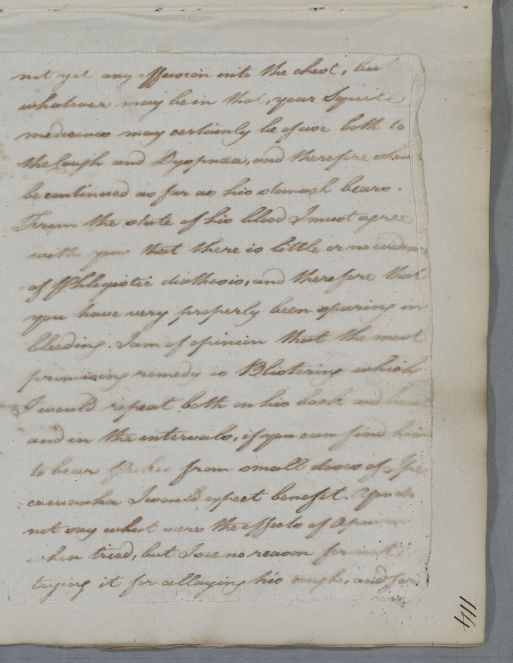 not yet any effusion into the chest, but
whatever may be in that, your Squill
medicines may certainly be of use both to
the Cough and Dyspnœa, and therefore shou
be continued as far as his stomach bears.
From the state of his blood I must agree
with you that there is little or no eviden
of Phlogistic diathesis, and therefore that
you have very properly been sparing in
bleeding. I am of opinion that the most
promising remedy is Blistering which
I would repeat both on his back and
and in the intervals, if you can find him
to bear from small doses of Ipe
cacuanha I would expect benefit. You do
not say what were the effects of Opium
when tried, but I see no reason for not
trying it for allaying his cough, and for
114